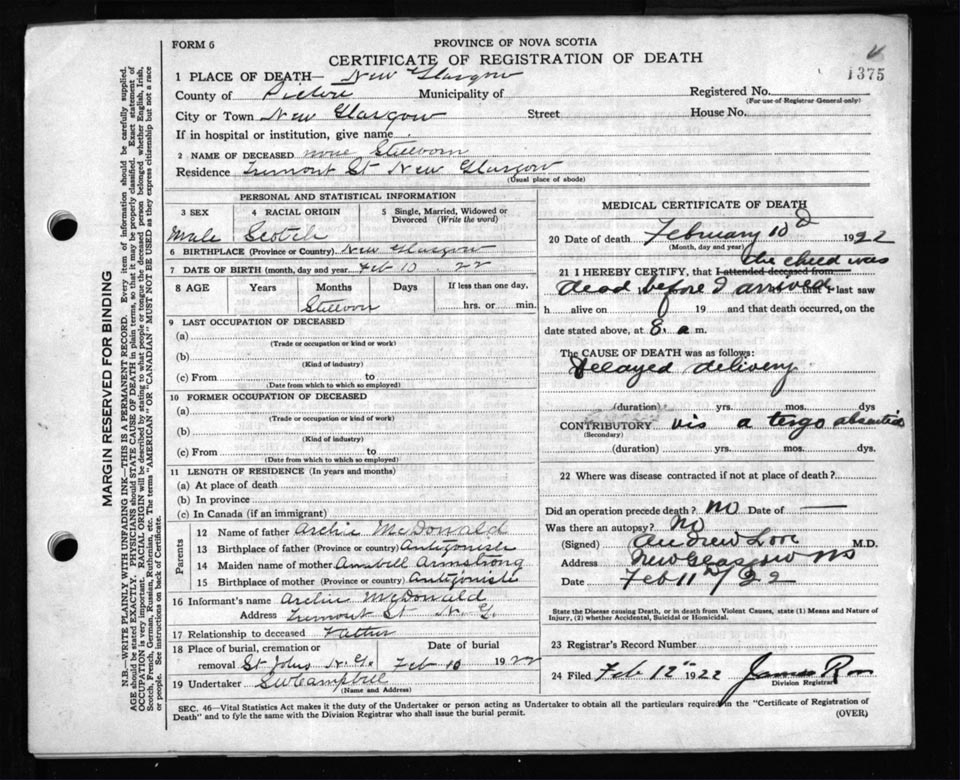 FORM 6
PROVINCE OF NOVA SCOTIA
CERTIFICATE OF REGISTRATION OF DEATH
1375
1 PLACE OF DEATH— New Glasgow
County of Pictou Municipality of Registered No.
(For use of Registrar General only)
City or Town New Glasgow Street House No.
If in hospital or institution, give name
2 NAME OF DECEASED none Stillborn
Residence Tremont St New Glasgow
(Usual place of abode)
PERSONAL AND STATISTICAL INFORMATION
3 SEX 4 RACIAL ORIGIN 5 Single, Married, Widowed or
Divorced (Write the word)
Male Scotch
6 BIRTHPLACE (Province or Country) New Glasgow
7 DATE OF BIRTH (month, day and year) Feb 10 22
8 AGE Years Months Days If less than one day,
Stillborn hrs. or min.
9 LAST OCCUPATION OF DECEASED
(a)
(Trade or occupation or kind or work)
(b)
(Kind of industry)
(c) From to
(Date from which to which so employed)
10 FORMER OCCUPATION OF DECEASED
(a)
(Trade or occupation or kind of work)
(b)
(Kind of industry)
(c) From to
(Date from which to which so employed)
11 LENGTH OF RESIDENCE (In years and months)
(a) At place of death
(b) In province
(c) In Canada (if an immigrant)
Parents
12 Name of father Archie McDonald
13 Birthplace of father (Province or country) Antigonish
14 Maiden name of mother Annbell Armstrong
15 Birthplace of mother (Province or country) Antigonish
16 Informant's name Archie McDonald
Address Tremont St N. G.
17 Relationship to deceased Father
18 Place of burial, cremation or Date of burial
removal St Johns N.G. Feb 10 1922
19 Undertaker SW Campbell
(Name and Address)
MEDICAL CERTIFICATE OF DEATH
20 Date of death February 10d 1922
(Month, day and year)
the child was
21 I HEREBY CERTIFY, that I attended deceased from
dead before I arrived that I last saw
h alive on 19 and that death occurred, on the
date stated above, at 8. a m.
The CAUSE OF DEATH was as follows:
Delayed delivery
(duration) yrs. mos. dys
CONTRIBUTORY vis a tergo
(Secondary)
(duration) yrs. mos. dys.
22 Where was disease contracted if not at place of death?
Did an operation precede death? No Date of —
Was there an autopsy? No
(Signed) Andrew Love M.D.
Address New Glasgow NS
Date Feb 11th/22
State the Disease causing Death, or in death from Violent Causes, state (1) Means and Nature of
Injury, (2) whether Accidental, Suicidal or Homicidal.
23 Registrar's Record Number
24 Filed Feb 12th 1922 James
Division Registrar
SEC. 46—Vital Statistics Act makes it duty of the Undertaker or person acting as Undertaker to obtain all the particulars required in the "Certificate of Registration of
Death" and to fyle the same with the Division Registrar who shall issue the burial permit.
(OVER)
MARGIN RESERVED FOR BINDING
N.B.—WRITE PLAINLY WITH UNFADING INK—THIS IS A PERMANENT RECORD. Every item of information should be carefully supplied.
AGE should be stated EXACTLY. PHYSICIANS should STATE CAUSE OF DEATH in plain terms, so that it may be properly classified. Exact statement of
OCCUPATION is very important. RACIAL ORIGIN will be described by stating to what people or tongue the deceased person belonged whether English, Irish,
Scotch, French, German, Russian, Ruthenian, etc. The terms "AMERICAN" OR "CANADIAN" MUST NOT BE USED as they express citizenship but not a race
or people. See instructions on back of Certificate.